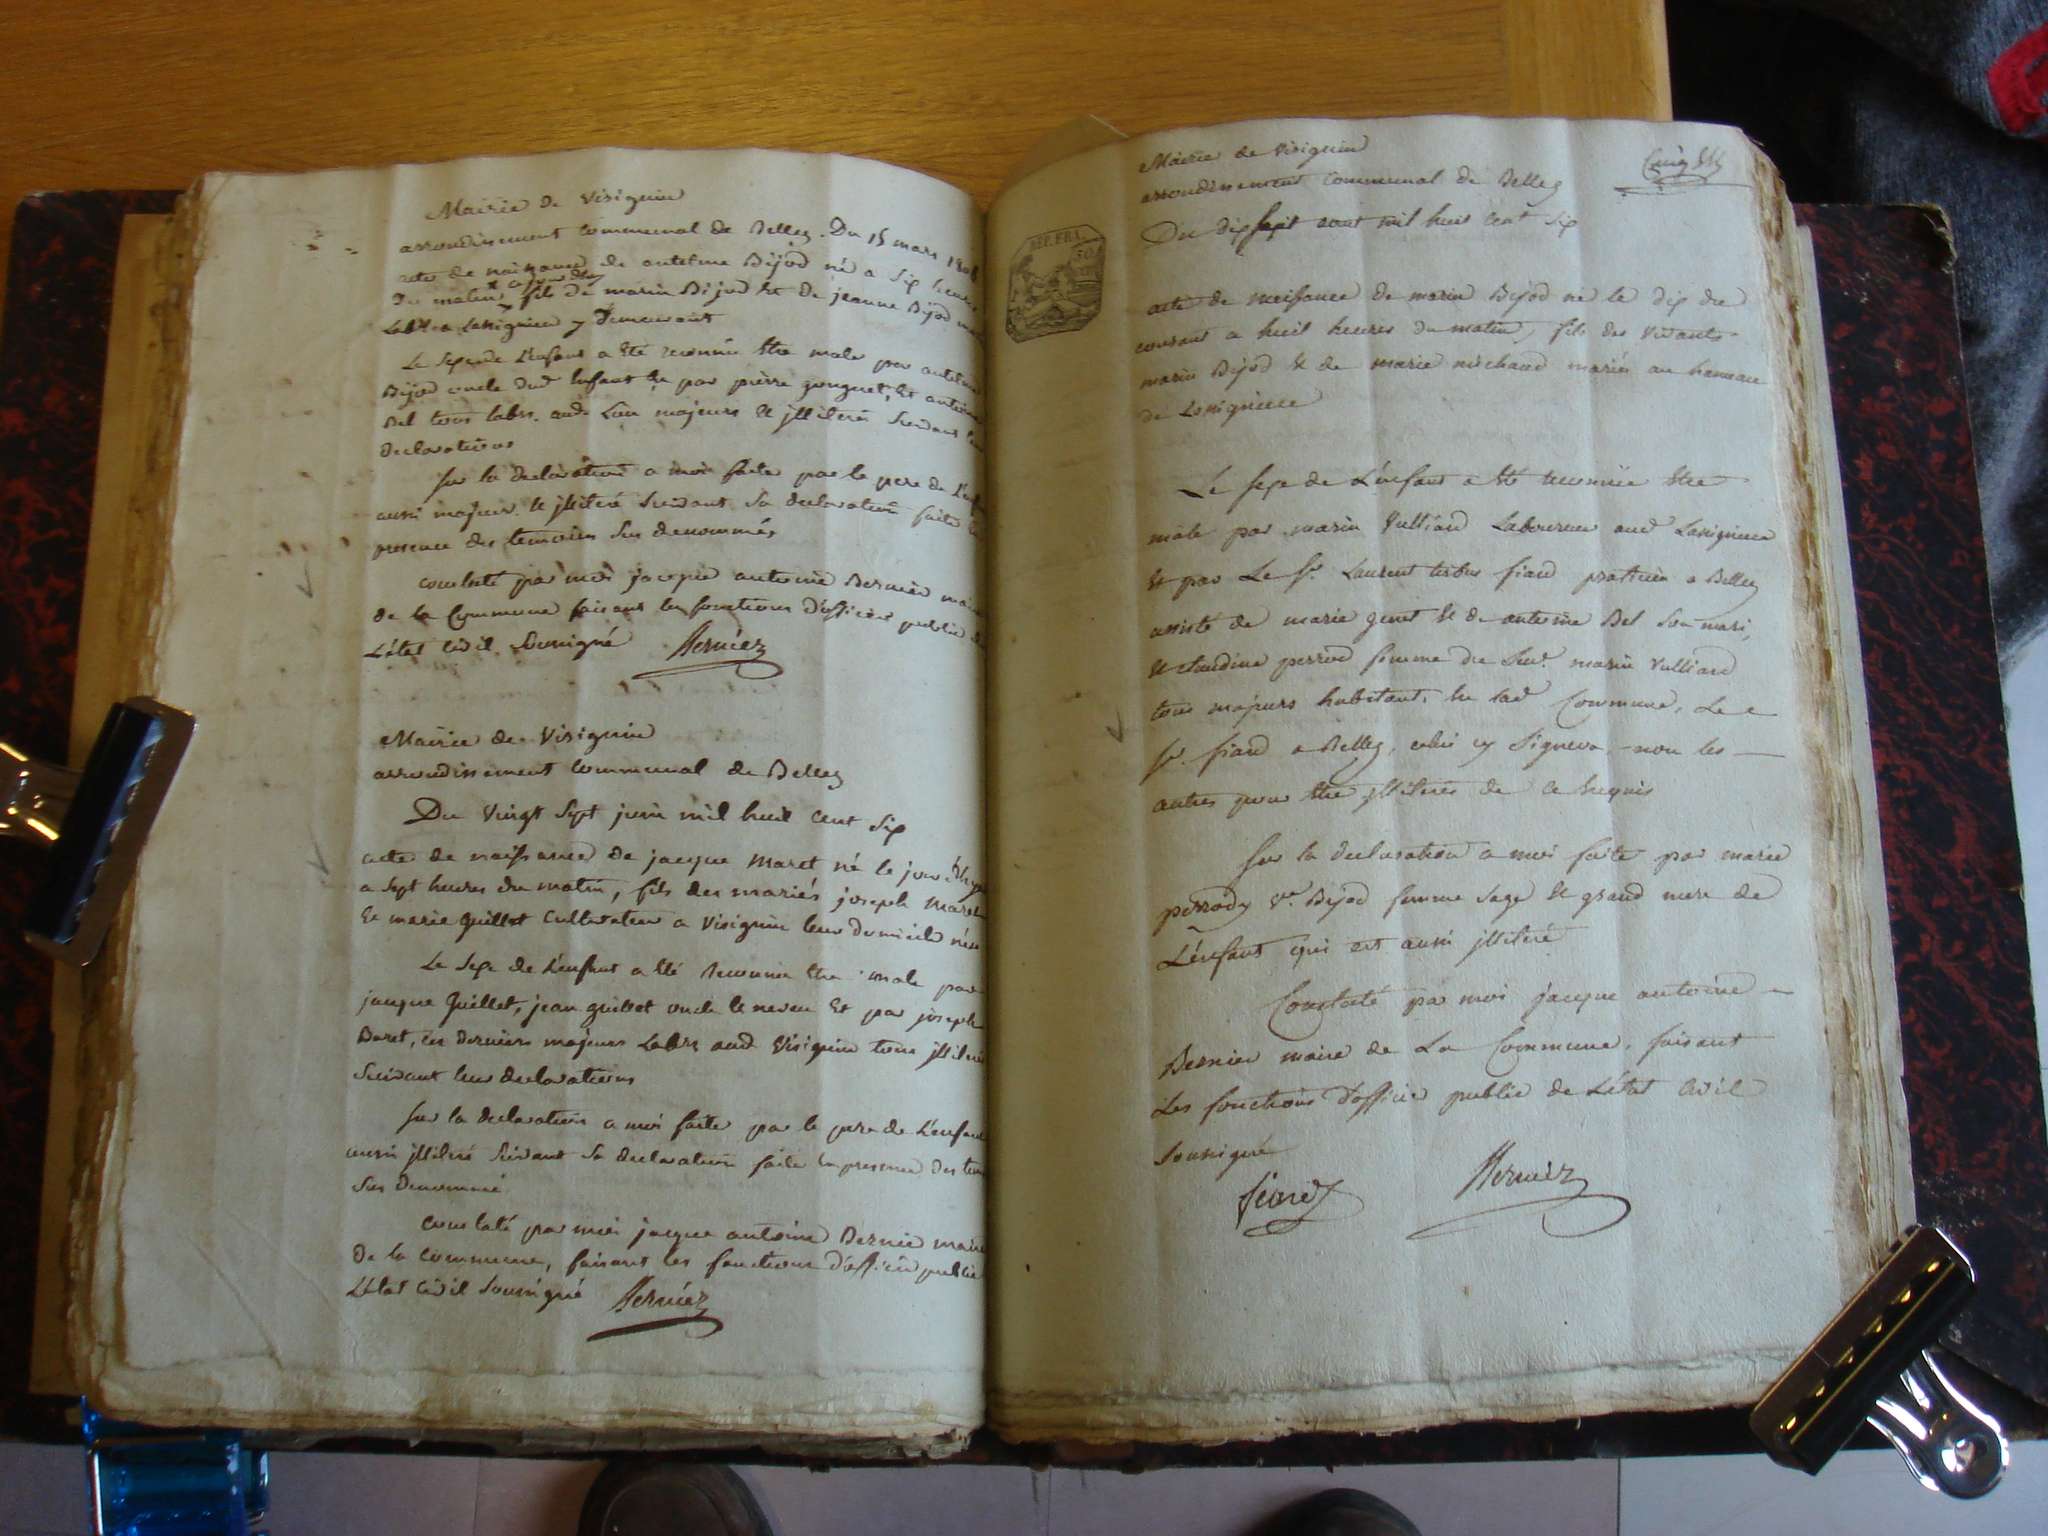 Mairie de Visignin
arrondissement Communal de Belley. Du 15 mars 1806
acte de naissance de antelme Bijod né a Six heures
du matin fils de marin Bijod Et de jeanne Bijod
Labr a Lassignieu y demeurants
Le Sexe de L'enfant a Eté reconnu Etre male par antelme
Bijod oncle dud Enfant Et par pierre gonguet, Et antoine
Bel tous labrs. aud. Lieu majeurs Et jlliterés Suivant leur
declarations
Sur la declaration a moi faite par le pere de L'enfant
aussi majeur Et jlliteré Suivant Sa declaration faite En
presence des temoins Sus denommés
Constaté par moi jacque antoine Bernier maire
de la Commune faisant les fonctions d'officier public de
L'état Civil Soussigné Bernier
Mairie de Visignin
arrondissement Communal de Belley
Du Vingt Sept juin mil huit Cent Six
acte de naissance de jacque Maret né le jour
a Sept heures du matin, fils des mariés joseph Maret
Et marie Guillot Cultivateur a Visignin leur domicile
Le Sexe de L'enfant a Eté reconnu Etre male par
jacque Guillet, jean guillet oncle Et neveu Et par joseph
Baret, ces derniers majeurs Labrs aud Visignin tous jlliterés
Suivant leur declarations
Sur la declaration a moi faite par le pere de L'enfant
aussi jlliteré Suivant Sa declaration faite En presence des
Sus denommé
Constaté par moi jacque antoine Bernier maire
de la Commune, faisant les fonctions d'officier public
L'état Civil Soussigné Bernier
Mairie de Visignin
arrondissement Communal de Belley
Du dix Sept aout mil huit Cent Six
REP. FRA.
50
acte de naissance de marin Bijod né le dix du
courant a huit heures du matin, fils des Vivants
marin Bijod Et de marie michaud mariés au hameau
de Lassignieu
Le Sexe de L'enfant a Eté reconnu Etre
male par marin Vulliard Laboureur aud Lassignieu
Et par Le Sr. Laurent fiard praticien a Belley
assisté de marie genet Et de antoine Bel Son mari,
Et Claudine perrod femme du Sud. marin Vulliard
tous majeurs habitant En lad Commune, Le
Sr. fiard a Belley, celui cy Signera non les
autres pour Etre jlliterés de ce Enquis
Sur la declaration a moi faite par marie
perrody Ve. Bijod femme Sage Et grand mere de
L'enfant qui est aussi jlliteré
Constaté par moi jacque antoine
Bernier maire de La Commune, faisant
Les fonctions d'officier public de L'état Civil
Soussigné
fiard Bernier